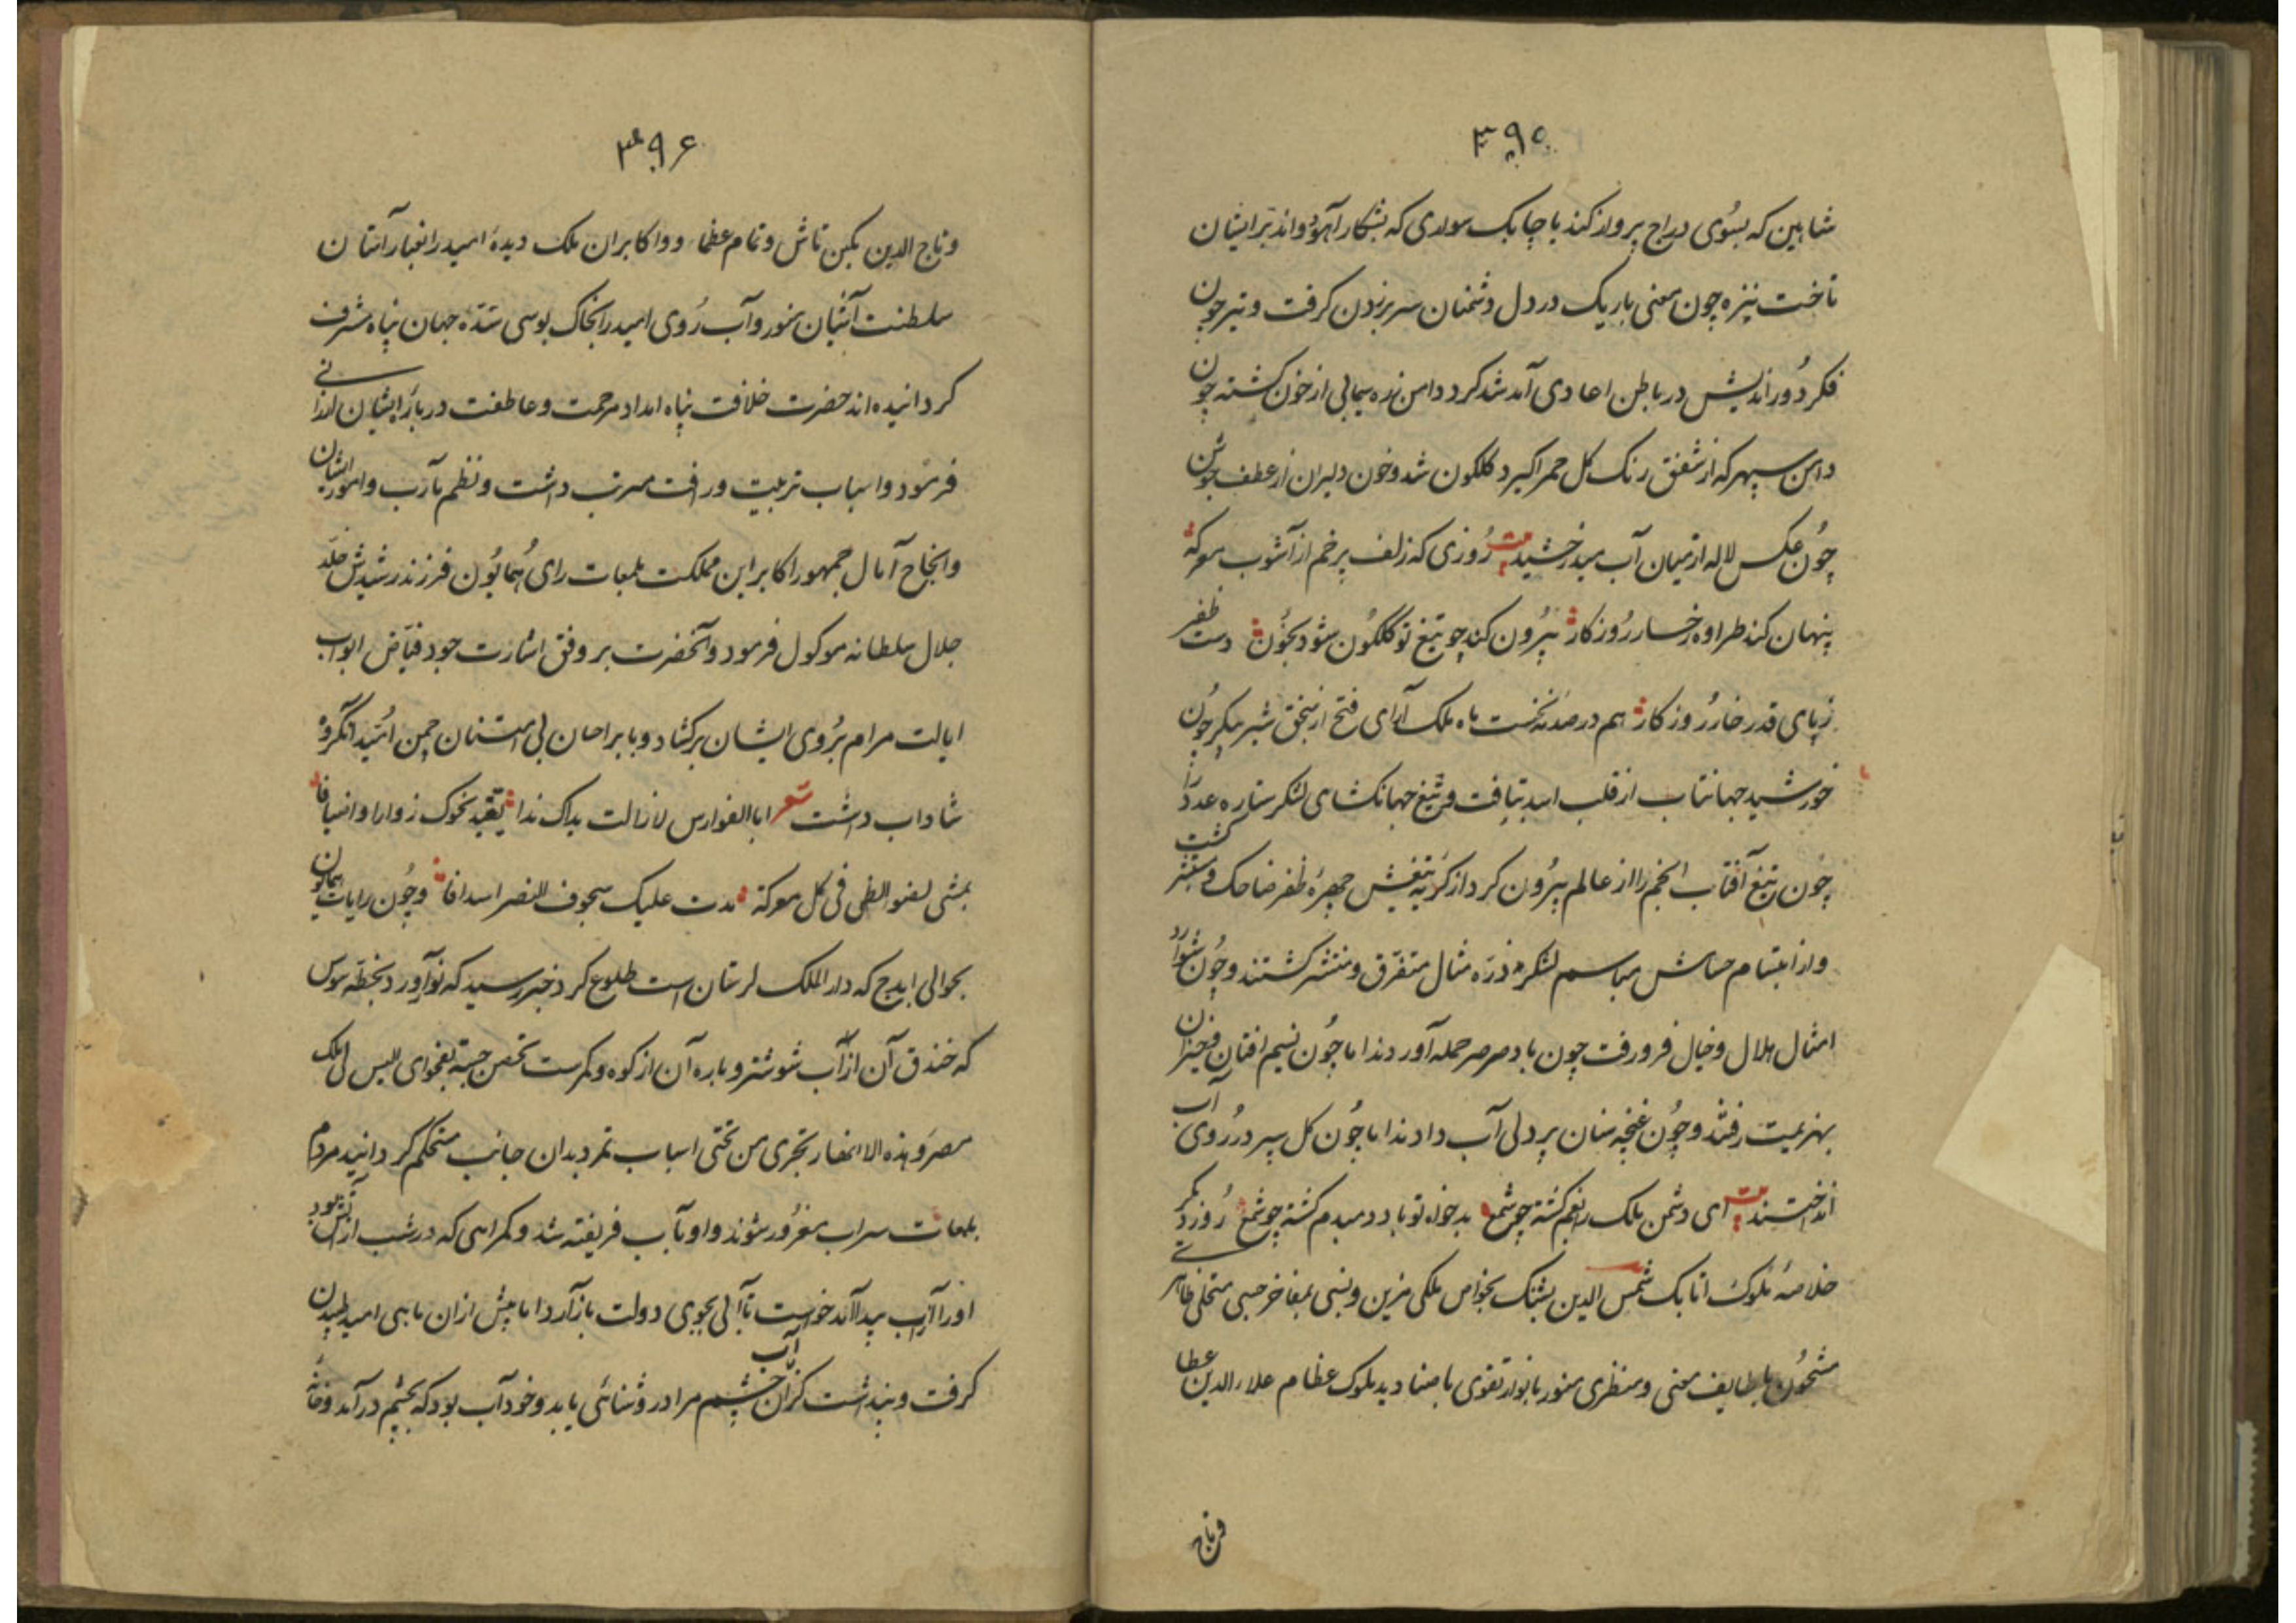 ۳۹۵
شاهین که بسوی دراج پرواز کند با چابک سواری که بشکار آهو دواند بر ایشان
تاخت نیزه چون معنی باریک در دل دشمنان سر بر زدن کرفت و تیر چون
فکر دور اندیش در باطن اعادی آمد شد کرد دامن زره سیمابی از خون کشته چون
دامن سپهر که از شفق رنک کل حمرا کیرد کلکون شد و خون دلیران از عطف جوشن
چون عکس لاله از میان آب میدرخشید بیت روزی که زلف پرخم از آشوب معرکه
پنهان کند طراوه رخسار روزکار بیرون کند چو تیغ تو کلکون شود بخون دست ظفر
زپای قدر خار روزکار هم در صدمه نخست ماه ملک آرای فتح از سنجق شیر پیکر چون
خورشید جهانتاب از قلب اسد بتافت و تیغ جهانکشای لشکر ستاره عدد را
چون تیغ آفتاب انجم را از عالم بیرون کرد از کریه تیغش چهره ظفر ضاحک و مستبشر کشت
و از ابتسام حسامش مباسم لشکر ذره مثال متفرق و منتشر کشتند و چون شوارد
امثال هلال و خیال فرو رفت چون باد صرصر حمله آوردند اما چون نسیم افتان و خیزان
بهزیمت رفتند و چون غنچه سنان پر دلی آب دادند اما چون کل سپر در روی آب
انداختند بیت ای دشمن ملک زغم کشته چو شمع بدخواه تو باد دمبدم کشته چو شمع روز دیکر
خلاصه ملوک اتابک شمس الدین پشنک بخواص ملکی مزین و نسبی بمفاخر حسبی متحلی ظاهری
مشحون بلطایف معنی و منظری منور بانوار تقوی با صنادید ملوک عظام علاء الدین عطا
و تاج
۳۹۶
و تاج الدین بکین تاش و تمام عظماء و اکابران ملک دیده امید را بغبار آستان
سلطنت آشیان منور و آب روی امید را بخاک بوسی سده جهان پناه مشرف
کردانیده اند حضرت خلافت پناه امداد مرحمت و عاطفت درباره ایشان ارزانی
فرمود و اسباب تربیت و رافت مرتب داشت و نظم مآرب و امور ایشان
و انجاح آمال جمهور اکابر این مملکت بلمعات رای همایون فرزند رشیدش خلد
جلال سلطانه موکول فرمود و آنحضرت بر وفق اشارت جود فیاض ابواب
ایالت مرام بروی ایشان برکشاد و بابر احسان بی امتنان چمن امید آنکروه
شاداب داشت شعر ابا الفوارس لازالت یداک ندا یقید نحوک زوارا و اضیافا
بمثی لضو الظی فی کل معرکة مدت علیک سجوف النصر اسدافا و چون رایات همایون
بحوالی ایدج که دار الملک لرستان است طلوع کرد خبر رسید که نوآورد بخطه سوس
که خندق آن از آب شوشتر و باره آن از کوه و کمرست تحصن جسته بفحوای الیس لی ملک
مصر و هذه الانهار تجری من تحتی اسباب تمرد بدان جانب مستحکم کردانید مردم
بلمعات سراب مغرور شوند و او بآب فریفته شد و کمراهی که در شب از آتش بود
او را از آب پیدا آمد خواست تا آبی بجوی دولت باز آرد اما پیش از ان ماهی امید طپیدن
کرفت و پنداشت کز ان آب چشم مرادر وشنائی یابد و خود آب بود که بچشم در آمد و خانه